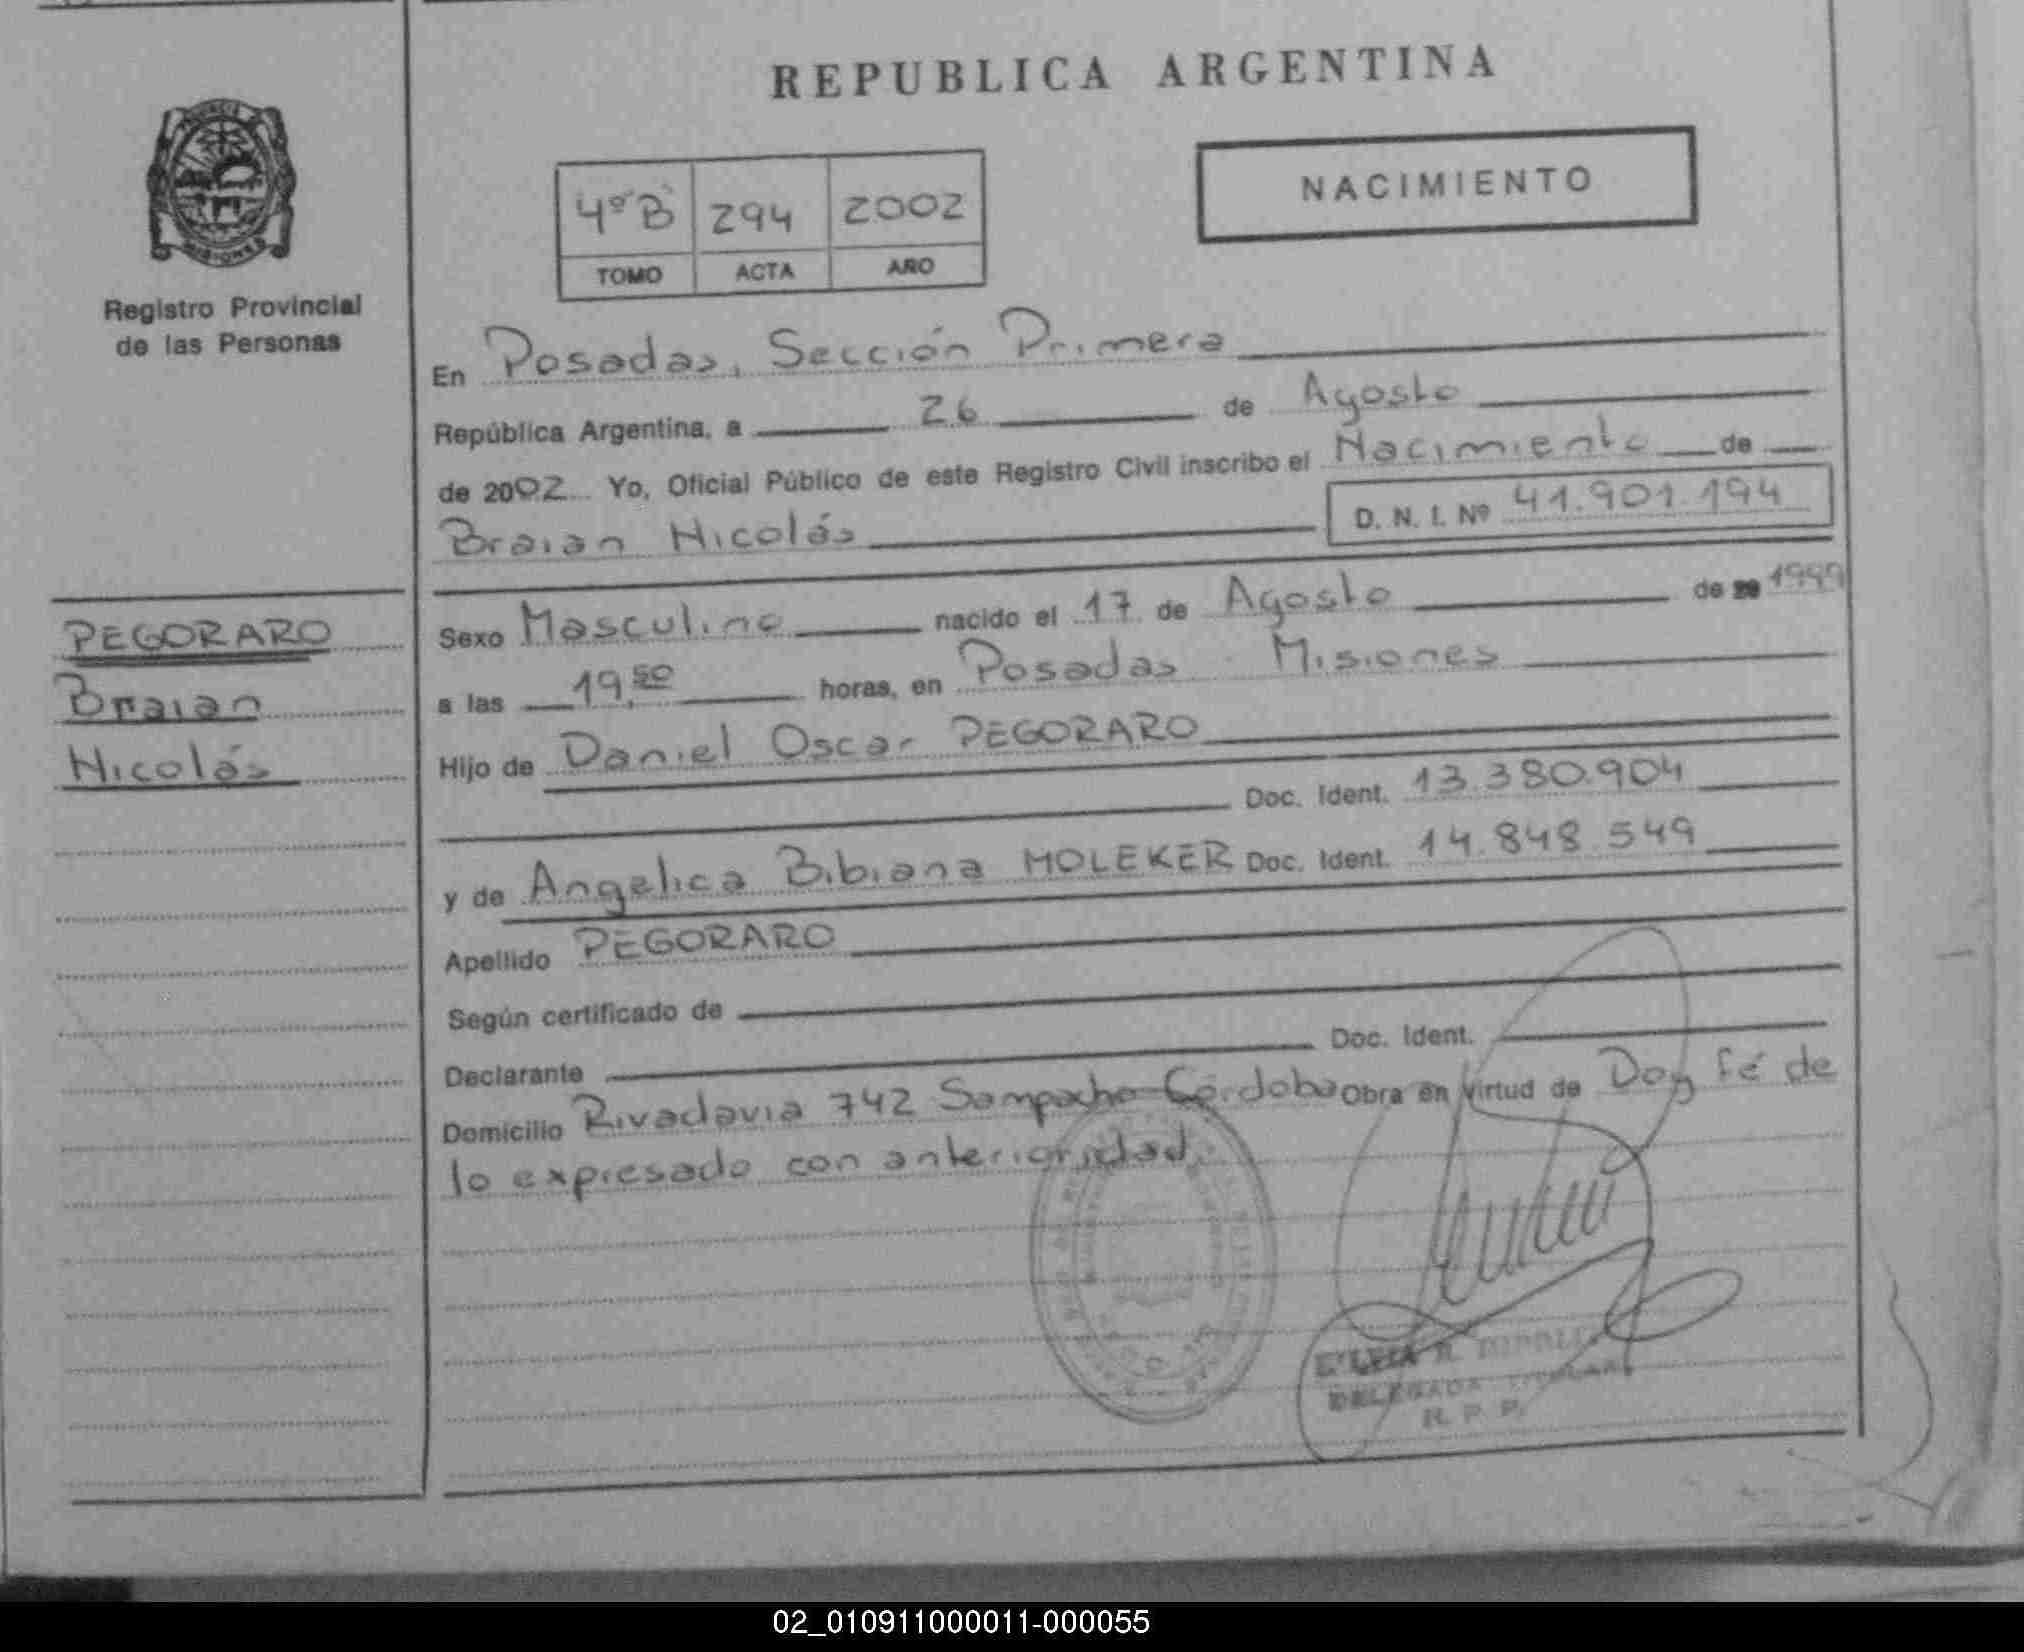 REPUBLICA ARGENTINA
NACIMIENTO
4ºB 294 2002
TOMO ACTA AÑO
MISIONES
Registro Provincial
de las Personas
En Posadas, Sección Primera
República Argentina, a 26 de Agosto
de 2002 Yo, Oficial Público de este Registro Civil inscribo el Nacimiento de
Braian Nicolás D. N. I. Nº 41.901.194
PEGORARO
Braian
Nicolás
Sexo Masculino nacido el 17 de Agosto de 1999
a las 19,50 horas, en Posadas Misiones
Hijo de Daniel Oscar PEGORARO
Doc. Ident. 13.380.904
y de Angelica Bibiana MOLEKER Doc. Ident. 14.848.549
Apellido PEGORARO
Según certificado de
Declarante Doc. Ident.
Domicilio Rivadavia 742 Sampacho Córdoba Obra en virtud de Doy fé de
lo expresado con anterioridad.
DELEGADA TITULAR
R. P. P.
02_010911000011-000055